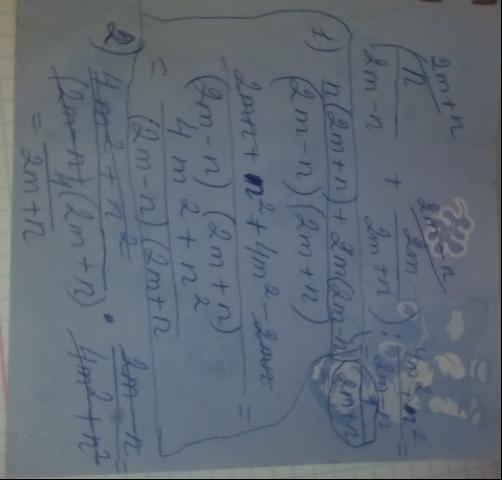 (n/(2m-n) + 2m/(2m+n)) : (4m²+n²)/(2m-n) =
1) (n(2m+n)+2m(2m-n))/((2m-n)(2m+n)) =
(2mn+n²+4m²-2mn)/((2m-n)(2m+n)) =
= (4m²+n²)/((2m-n)(2m+n))
2) (4m²+n²)/((2m-n)(2m+n)) · (2m-n)/(4m²+n²) =
= /(2m+n)